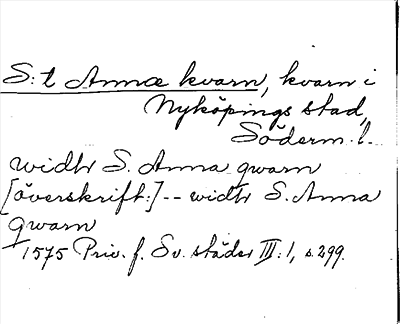 S:t Annæ kvarn, kvarn i
Nyköpings stad,
Söderm. l.
widh S. Anna qwarn
[överskrift:] -- widh S. Anna
qwarn
1575 Priv. f. Sv. städer III:1, s. 299.